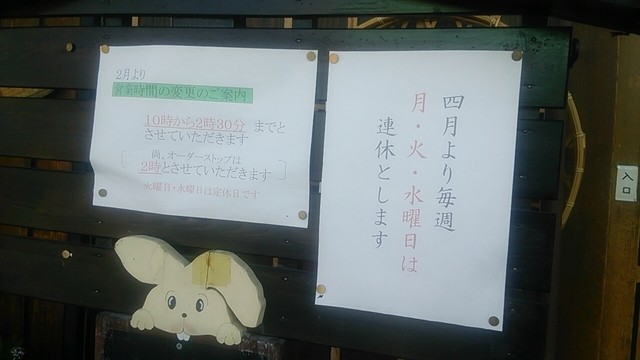 2月より
営業時間の変更のご案内
10時から2時30分 までと
させていただきます
尚、オーダーストップは
2時とさせていただきます
火曜日・水曜日は定休日です
四月より毎週
月・火・水曜日は
連休とします
入口